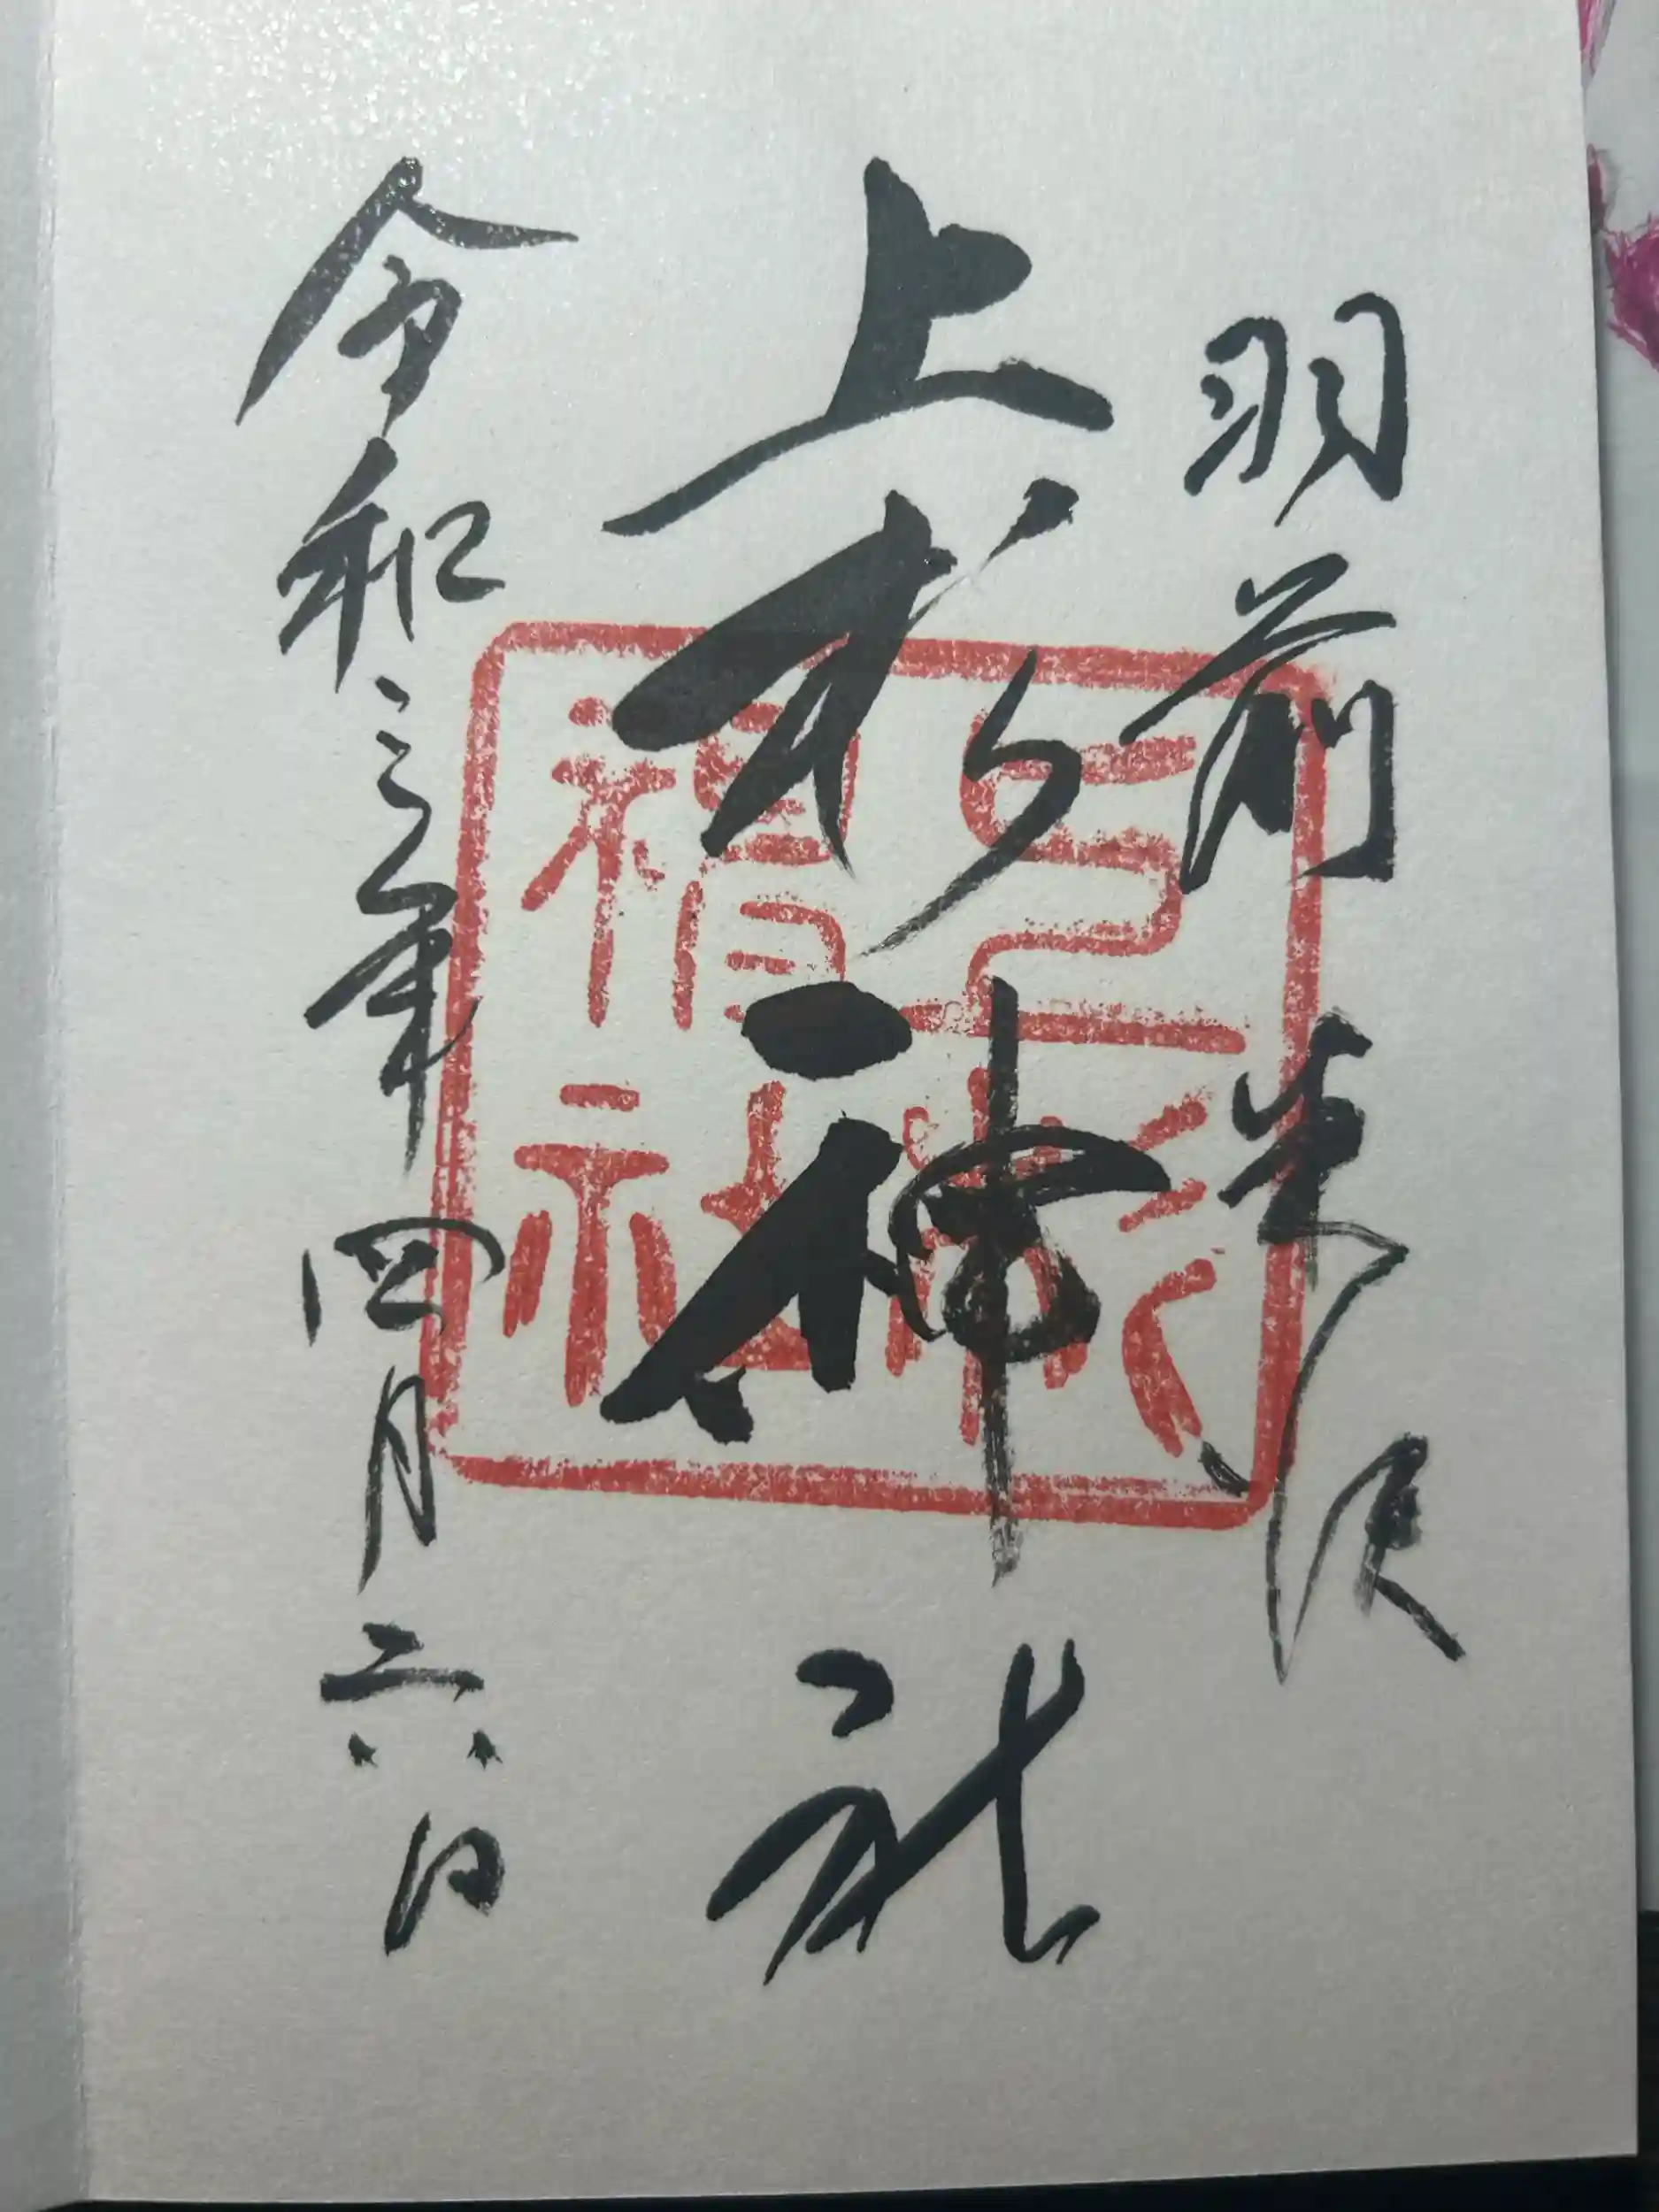 羽前米沢
上杉神社
令和三年四月六日
上杉神社